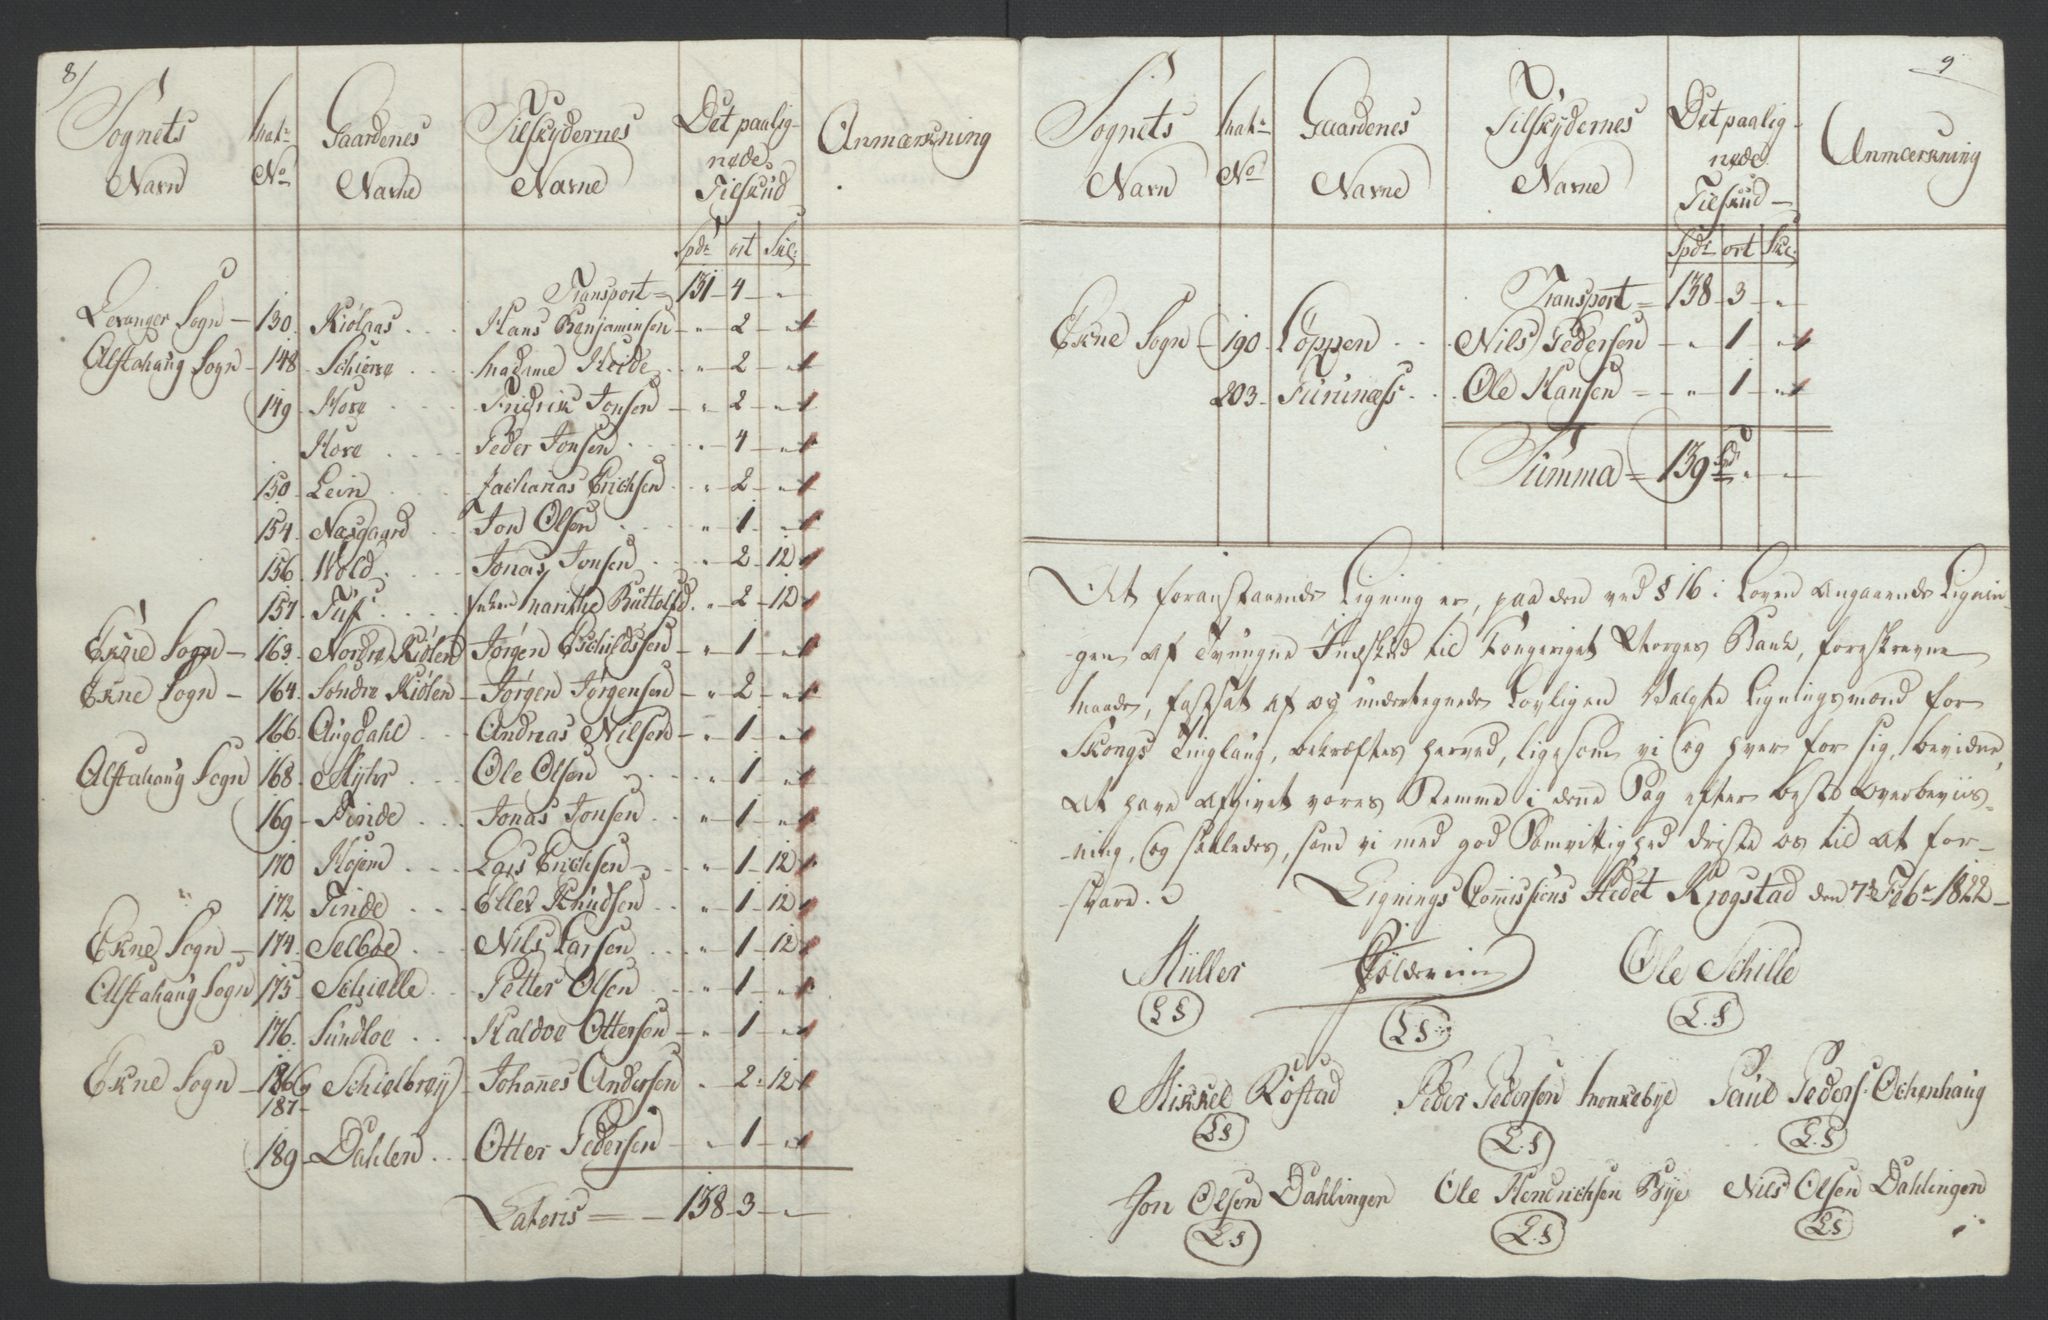 8/
Sognets Navn | Mat: No | Gaardenes Navne | Tilskydernes Navne | Det paalignede Tilskud | Anmærkning
Spdr ort Skl:
Transport = 131 - 4 - "
Levanger Sogn - 130. Kiølaas . . . Hans Benjaminsen - " - 2 - "
Alstahaug Sogn - 148 - Schierve . . . Madame Heide . . " - 2 - "
149 - Hove . . . Fridrik Jonsen - " - 2 - "
Hove . . . Peder Jonsen . . . " - 4 - "
150 - Lein . . . Zacharias Erichsen . . " - 2 - "
154 - Næsgaard . . Jon Olsen . . . " - 1 - "
156 - Wold . . . Jonas Jonsen . . . " - 2 - 12
157 - Tuf . . . Enken Marithe Buttolfd. " - 2 - 12
Ekne Sogn - 163. Nordre Kiølen - Jørgen Eschildsen - " - 1 - "
Ekne Sogn - 164. Søndre Kiølen - Jørgen Jørgensen - " - 2 - "
166. Augdahl . . Andreas Nilsen - " - 1 - "
Alstahaug Sogn 168. Myhr . . . Ole Olsen . . . " - 1 - "
169 - Tinde . . . Jonas Jonsen . . " - 1 - "
170 Hojem . . . Lars Erichsen . . " - 1 - 12
172 Tinde . . . Elles Knudsen . . " - 1 - 12
Ekne Sogn - 174. Selboe . . . Nils Larsen . . . " - 1 - 12
Alstahaug Sogn 175. Schielle . . . Petter Olsen . . " - 1 - "
176. Sundloe . . . Haldoe Ottersen - " - 1 - "
Ekne Sogn - 186 og 187 - Schielbrøy - Johannes Andersen . " - 2 - 12
189 - Dahlen . . . Otter Pedersen - " - 1 - "
Lateris = - 138 - 3 - "
9
Sognets Navn | Mat: No | Gaardenes Navne | Tilskydernes Navne | Det paalignede Tilskud - | Anmærkning
Spdr ort Skl:
Transport = 138 - 3 - "
Ekne Sogn - 190 - Loppen . . . Nils Pedersen - " - 1 - "
203 - Furunæss . . Ole Hansen = - " - 1 - "
Summa = 139 Spd " - "
At foranstaaende Ligning er, paa den ved § 16 i Loven angaaende Lignin-
gen af Tvungne Indskud til Kongeriget Norges Bank, foreskrevne
Maade, fastsat af os undertegnede Lovligen Valgte Ligningsmænd for
Skongs Tinglaug, bekræftes herved, ligesom vi og hver for sig, bevidne,
at have afgivet vores Stemme i denne Sag efter beste Overbeviis-
-ning, og saaledes, som vi med god Samvittighed driste os til at for-
-svare. Lignings Commissions Stedet Rjøgstad den 7de Febr 1822 -
Müller
L S
L S
Ole Schille
L. S
Mikkel Røstad
L S
Peder Pedersen Munkebye
L. S
Paul Peders: Ochenhaug
L. S
Jon Olsen Dahlingen
L S
Ole Hendrichsen Bye
L. S
Nils Olsen Dahlingen
L S